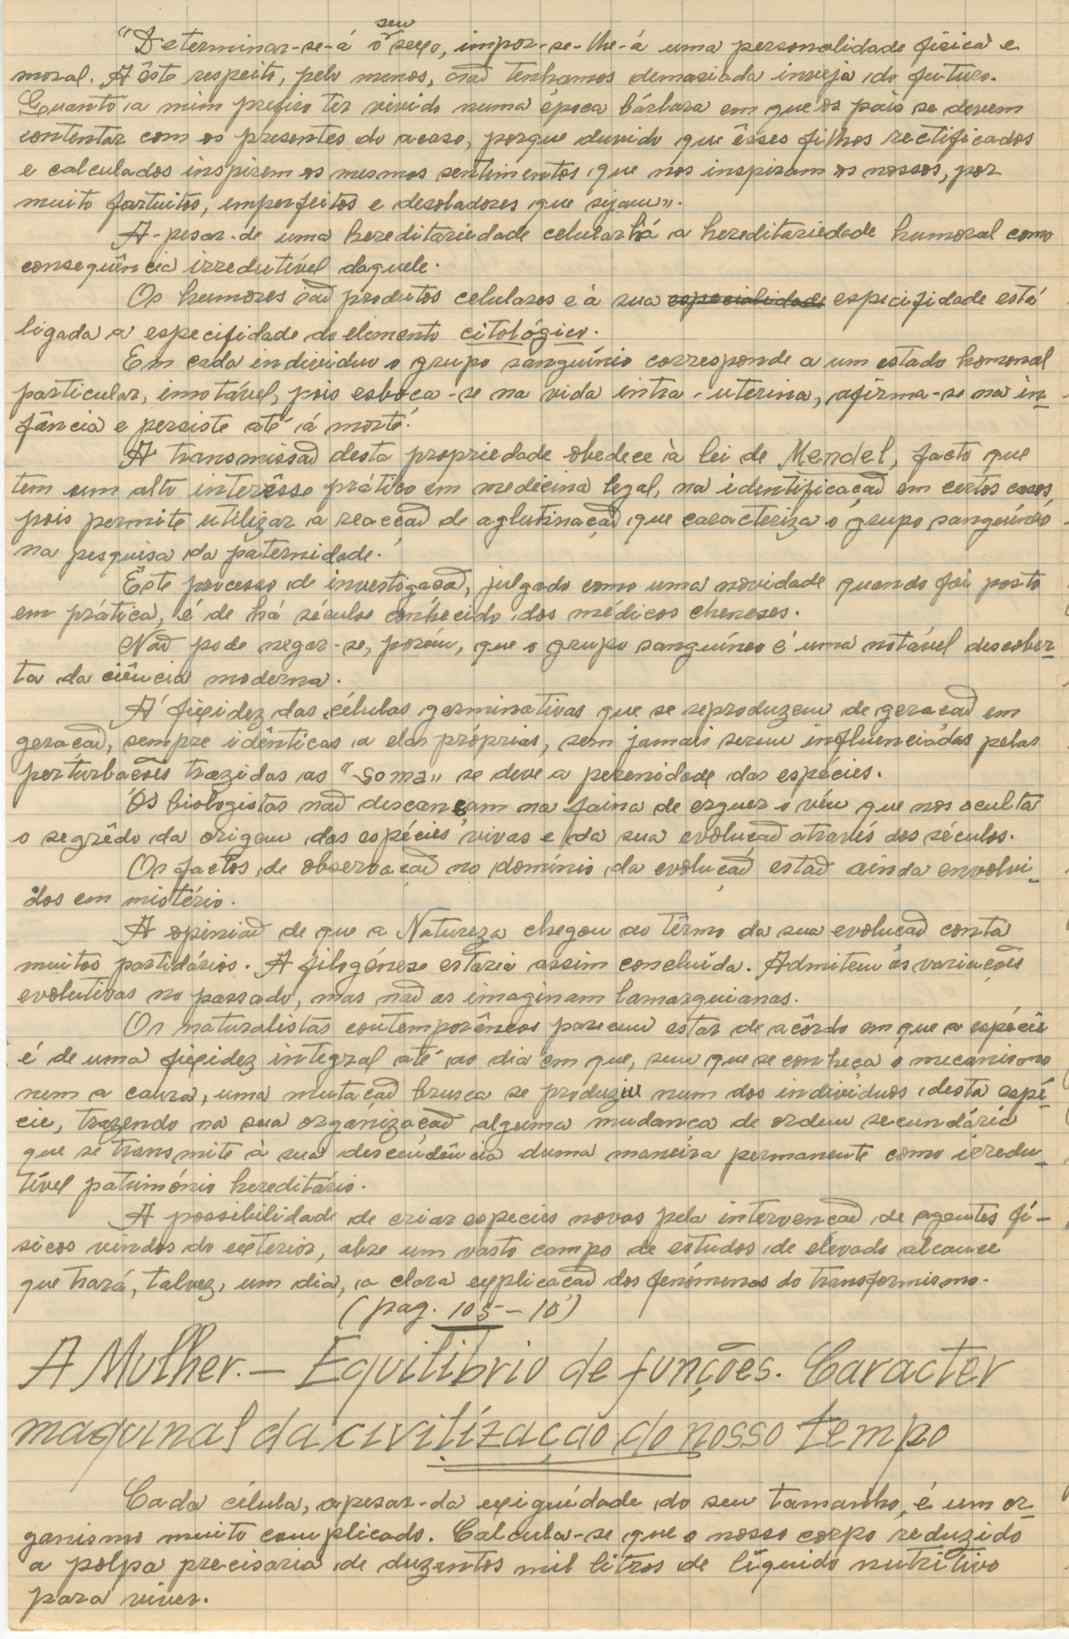 "Determinar-se-á o seu sexo, impor-se-lhe-á uma personalidade física e
moral. A êste respeito, pelo menos, não tenhamos demasiada inveja do futuro.
Quanto a mim prefiro ter vivido numa época bárbara em que os pais se devem
contentar com os presentes do acaso, porque duvido que êsses filhos rectificados
e calculados inspirem os mesmos sentimentos que nos inspiram os nossos, por
muito fortuitos, imperfeitos e desoladores que sejam".
A-pesar-de uma hereditariedade celular há a hereditariedade humoral como
conseqüência irredutível daquele.
Os humores são produtos celulares e á sua especialidade especifidade está
ligada a especifidade do elemento citológico.
Em cada individuo o grupo sanguínio corresponde a um estado homonal
particular, imotável, pois esboça-se na vida intra-uterina, afirma-se na in-
fância e persiste até á morte.
A transmissão desta propriedade obedece à lei de Mendel, facto que
tem um alto interêsse prático em medicina legal, na identificação em certos casos,
pois permite utilizar a reacção de aglutinação que caracteriza o grupo sanguíneo
na pesquisa da paternidade.
Êste processo de investigação, julgado como uma novidade quando foi posto
em prática, é de há séculos conhecido dos médicos cheneses.
Não pode negar-se, porém, que o grupo sanguíneo é uma notável descober-
ta da ciência moderna.
A fixidez das células germinativas que se reproduzem de geração em
geração, sempre idênticas a elas próprias, sem jamais serem influenciadas pelas
perturbações trazidas ao "soma" se deve a perenidade das espécies.
Os biologistas não descansam na faina de erguer o véu que nos oculta
o segrêdo da origem das espécies vivas e da sua evolução através dos séculos.
Os factos de observação no domínio da evolução estão ainda envolvi-
dos em mistério.
A opinião de que a Natureza chegou ao têrmo da sua evolução conta
muitos partidários. A filogénese estaria assim concluída. Admitem as variações
evolutivas no passado, mas não as imaginam lamarquianas.
Os naturalistas contemporâneos parecem estar de acôrdo em que a espécie
é de uma fixidez integral até ao dia em que, sem que se conheça o mecanismo
nem a causa, uma mutação brusca se produziu num dos individuos desta espé-
cie, trazendo na sua organização alguma mudança de ordem secundária
que se transmite à sua descendência duma maneira permanente como irredu-
tível património hereditário.
A possibilidade de criar espécies novas pela intervenção de agentes fí-
sicos vindos do exterior, abre um vasto campo de estudos de elevado alcance
que trará, talvez, um dia, a clara explicação dos fenómenos do transformismo.
(pag. 105-10)
A Mulher. — Equilibrio de funções. Caracter
maquinal da civilização do nosso tempo
Cada célula, apesar-da exiguidade do seu tamanho, é um or-
ganismo muito complicado. Calcula-se que o nosso corpo reduzido
a polpa precisaria de duzentos mil litros de líquido nutritivo
para viver.